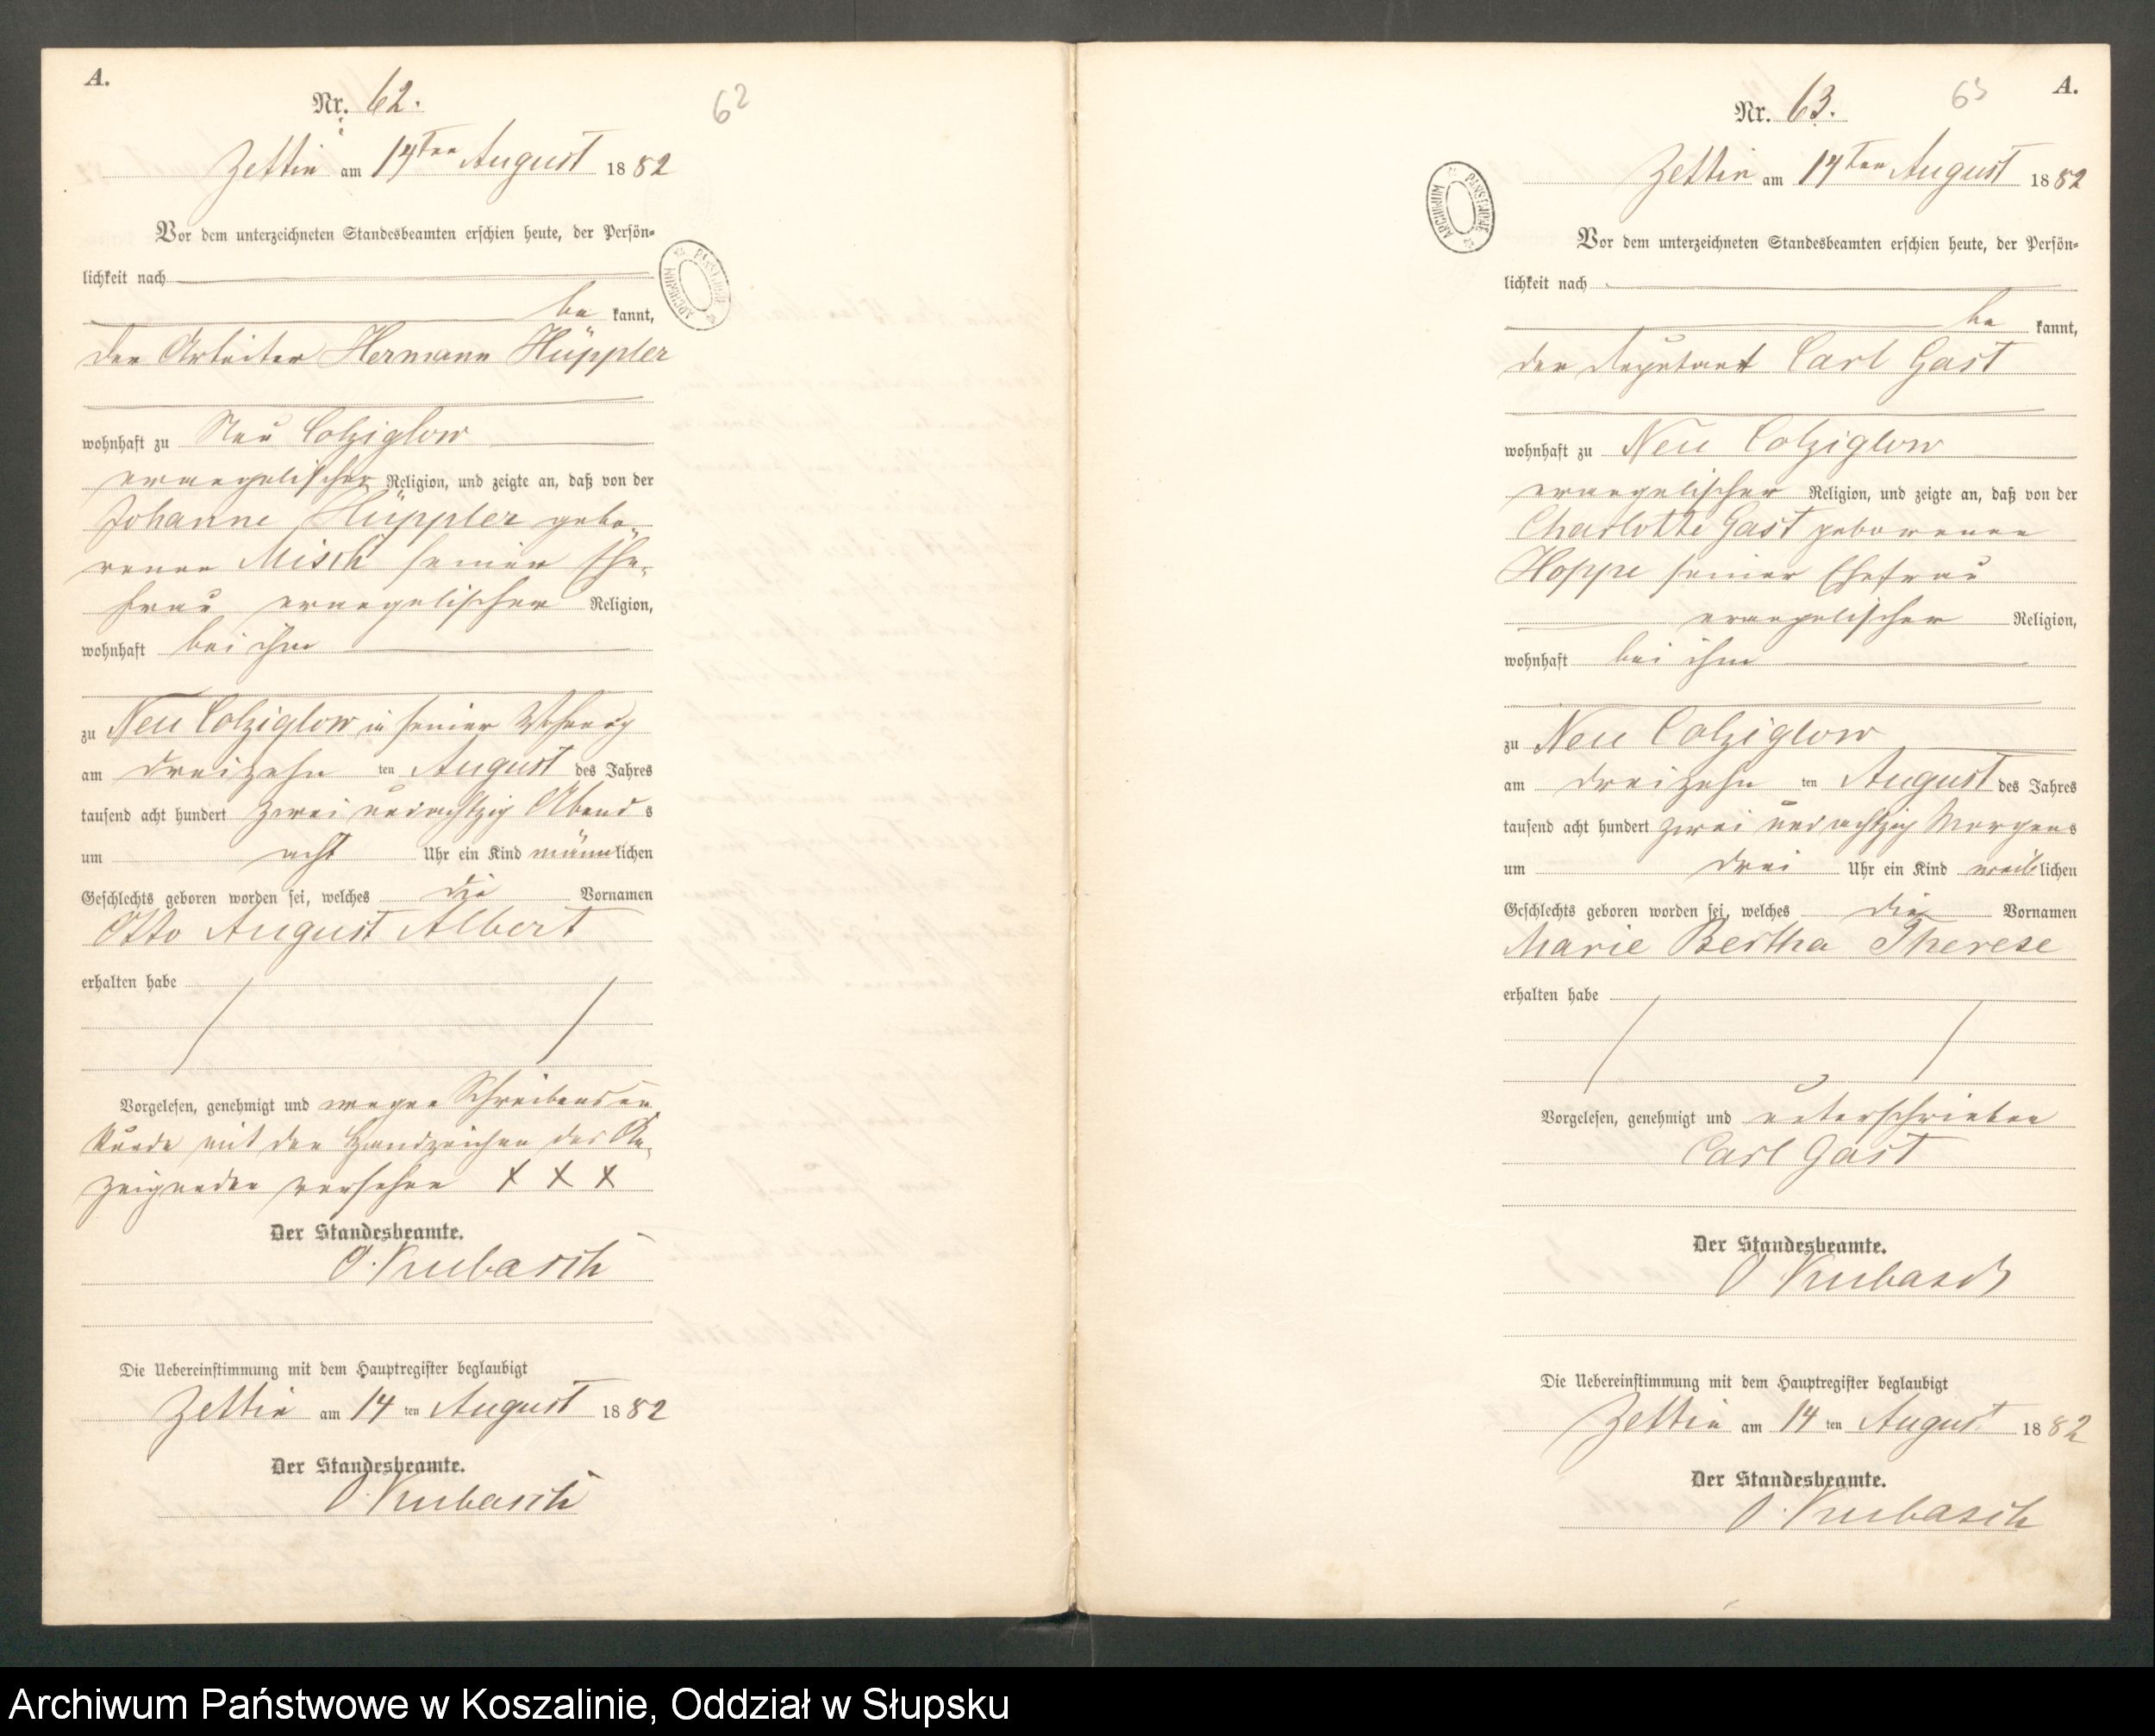 A.
Nr. 62.
62
Zettin am 14ten August 1882
Vor dem unterzeichneten Standesbeamten erschien heute, der Persön-
lichkeit nach
be kannt,
der Arbeiter Hermann Hüppler
wohnhaft zu Neu Colziglow
evangelischer Religion, und zeigte an, daß von der
Johanne Hüppler gebo-
renen Misch seiner Ehe-
frau evangelischer Religion,
wohnhaft bei ihm
zu Neu Colziglow in seiner Wohnung
am dreizehn ten August des Jahres
tausend acht hundert zwei und achtzig Abends
um acht Uhr ein Kind männlichen
Geschlechts geboren worden sei, welches die Vornamen
Otto August Albert
erhalten habe
Vorgelesen, genehmigt und wegen Schreibensun
kunde mit den Handzeichen des An-
zeigenden versehen X X X
Der Standesbeamte.
O. Kubasch
Die Uebereinstimmung mit dem Hauptregister beglaubigt
Zettin am 14 ten August 1882
Der Standesbeamte.
O. Kubasch
A.
Nr. 63.
63
Zettin am 14ten August 1882
ARCHIWUM PAŃSTWOWE
Vor dem unterzeichneten Standesbeamten erschien heute, der Persön-
lichkeit nach
be kannt,
der Deputant Carl Gast
wohnhaft zu Neu Colziglow
evangelischer Religion, und zeigte an, daß von der
Charlotte Gast geborenen
Hoppe seiner Ehefrau
evangelischer Religion,
wohnhaft bei ihm
zu Neu Colziglow
am dreizehn ten August des Jahres
tausend acht hundert zwei und achtzig Morgens
um drei Uhr ein Kind weiblichen
Geschlechts geboren worden sei, welches die Vornamen
Marie Bertha Therese
erhalten habe
Vorgelesen, genehmigt und unterschrieben
Carl Gast
Der Standesbeamte.
O Kubasch
Die Uebereinstimmung mit dem Hauptregister beglaubigt
Zettin am 14 ten August 1882
Der Standesbeamte.
O. Kubasch
Archiwum Państwowe w Koszalinie, Oddział w Słupsku